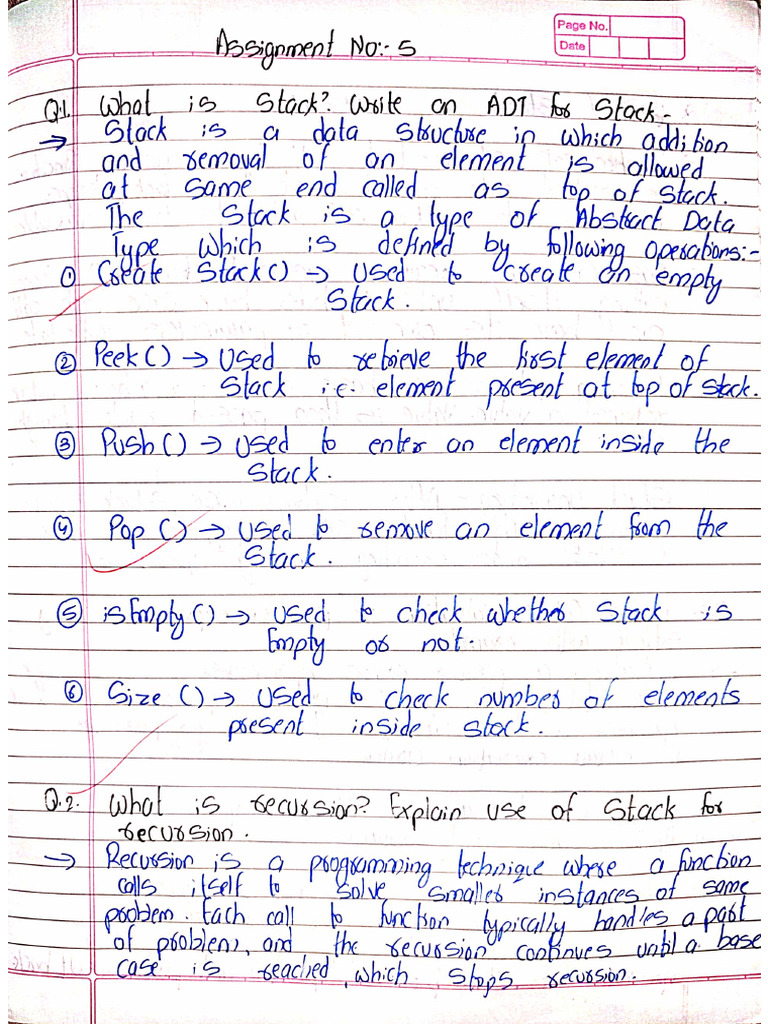 Page No.
Date
Assignment No:- 5
Q.1. What is Stack?. Write an ADT for Stack -
→ Stack is a data structure in which addition
and removal of an element is allowed
at same end called as top of stack.
The Stack is a type of Abstract Data
Type which is defined by following operations:-
① Create Stack() → Used to create an empty
Stack.
② Peek() → Used to retrieve the first element of
Stack i.e. element present at top of stack.
③ Push() → Used to enter an element inside the
Stack.
④ Pop () → Used to remove an element from the
Stack.
⑤ isEmpty() → Used to check whether Stack is
Empty or not.
⑥ Size () → Used to check number of elements
present inside stack.
Q.2. What is recursion? Explain use of Stack for
recursion.
→ Recursion is a programming technique where a function
calls itself to solve smaller instances of same
problem. Each call to function typically handles a part
of problem, and the recursion continues until a base
case is reached, which stops recursion.